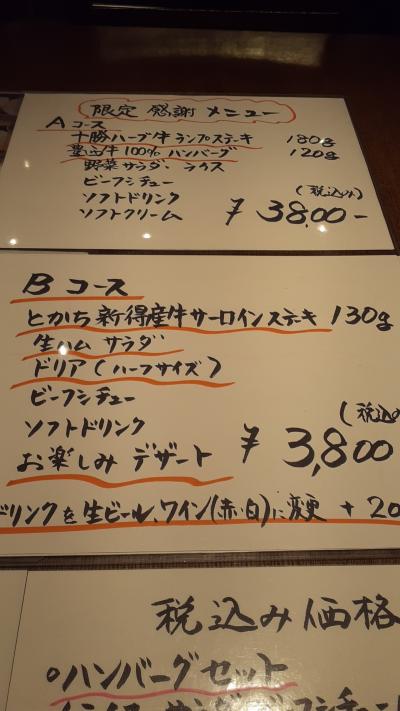 限定 感謝 メニュー
Aコース
十勝ハーブ牛 ランプステーキ 180g
豊西牛100% ハンバーグ 120g
野菜サラダ、ライス
ビーフシチュー
ソフトドリンク (税込み)
ソフトクリーム ¥3800-
B コース
とかち新得産牛サーロインステーキ 130g
生ハム サラダ
ドリア(ハーフサイズ)
ビーフシチュー
ソフトドリンク (税込
お楽しみ デザート ¥3,800
ドリンクを生ビール、ワイン(赤・白)に変更 +20
税込み価格
○ハンバーグセット